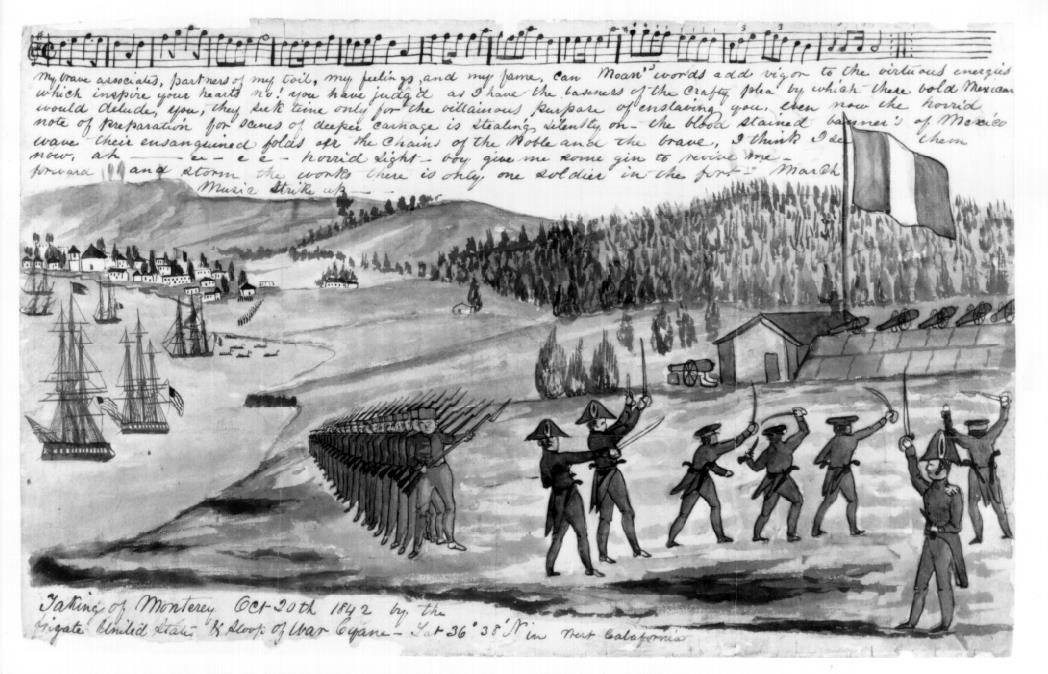 My brave associates, partners of my toil, my feelings, and my fame, can Moan's words add vigor to the virtuous energies
which inspire your hearts no! you have judg'd as I have the baseness of the Crafty plea by which these bold Mexican
would delude you, they seek time only for the villainous purpose of enslaving you, even now the horrid
note of Preparation for scenes of deeper carnage is stealing silently on - the blood stained banner's of Mexico
wave their ensanguined folds o'er the Chains of the Noble and the brave, I think I see them
now, ah horrid sight - boy give me some gin to revive me -
forward !! and storm the works there is only one soldier in the fort - March
Music Strike up
Taking of Monterey Oct 20th 1842 by the
frigate United States & Sloop of War Cyane - Lat 36° 38' N in West Calafornia